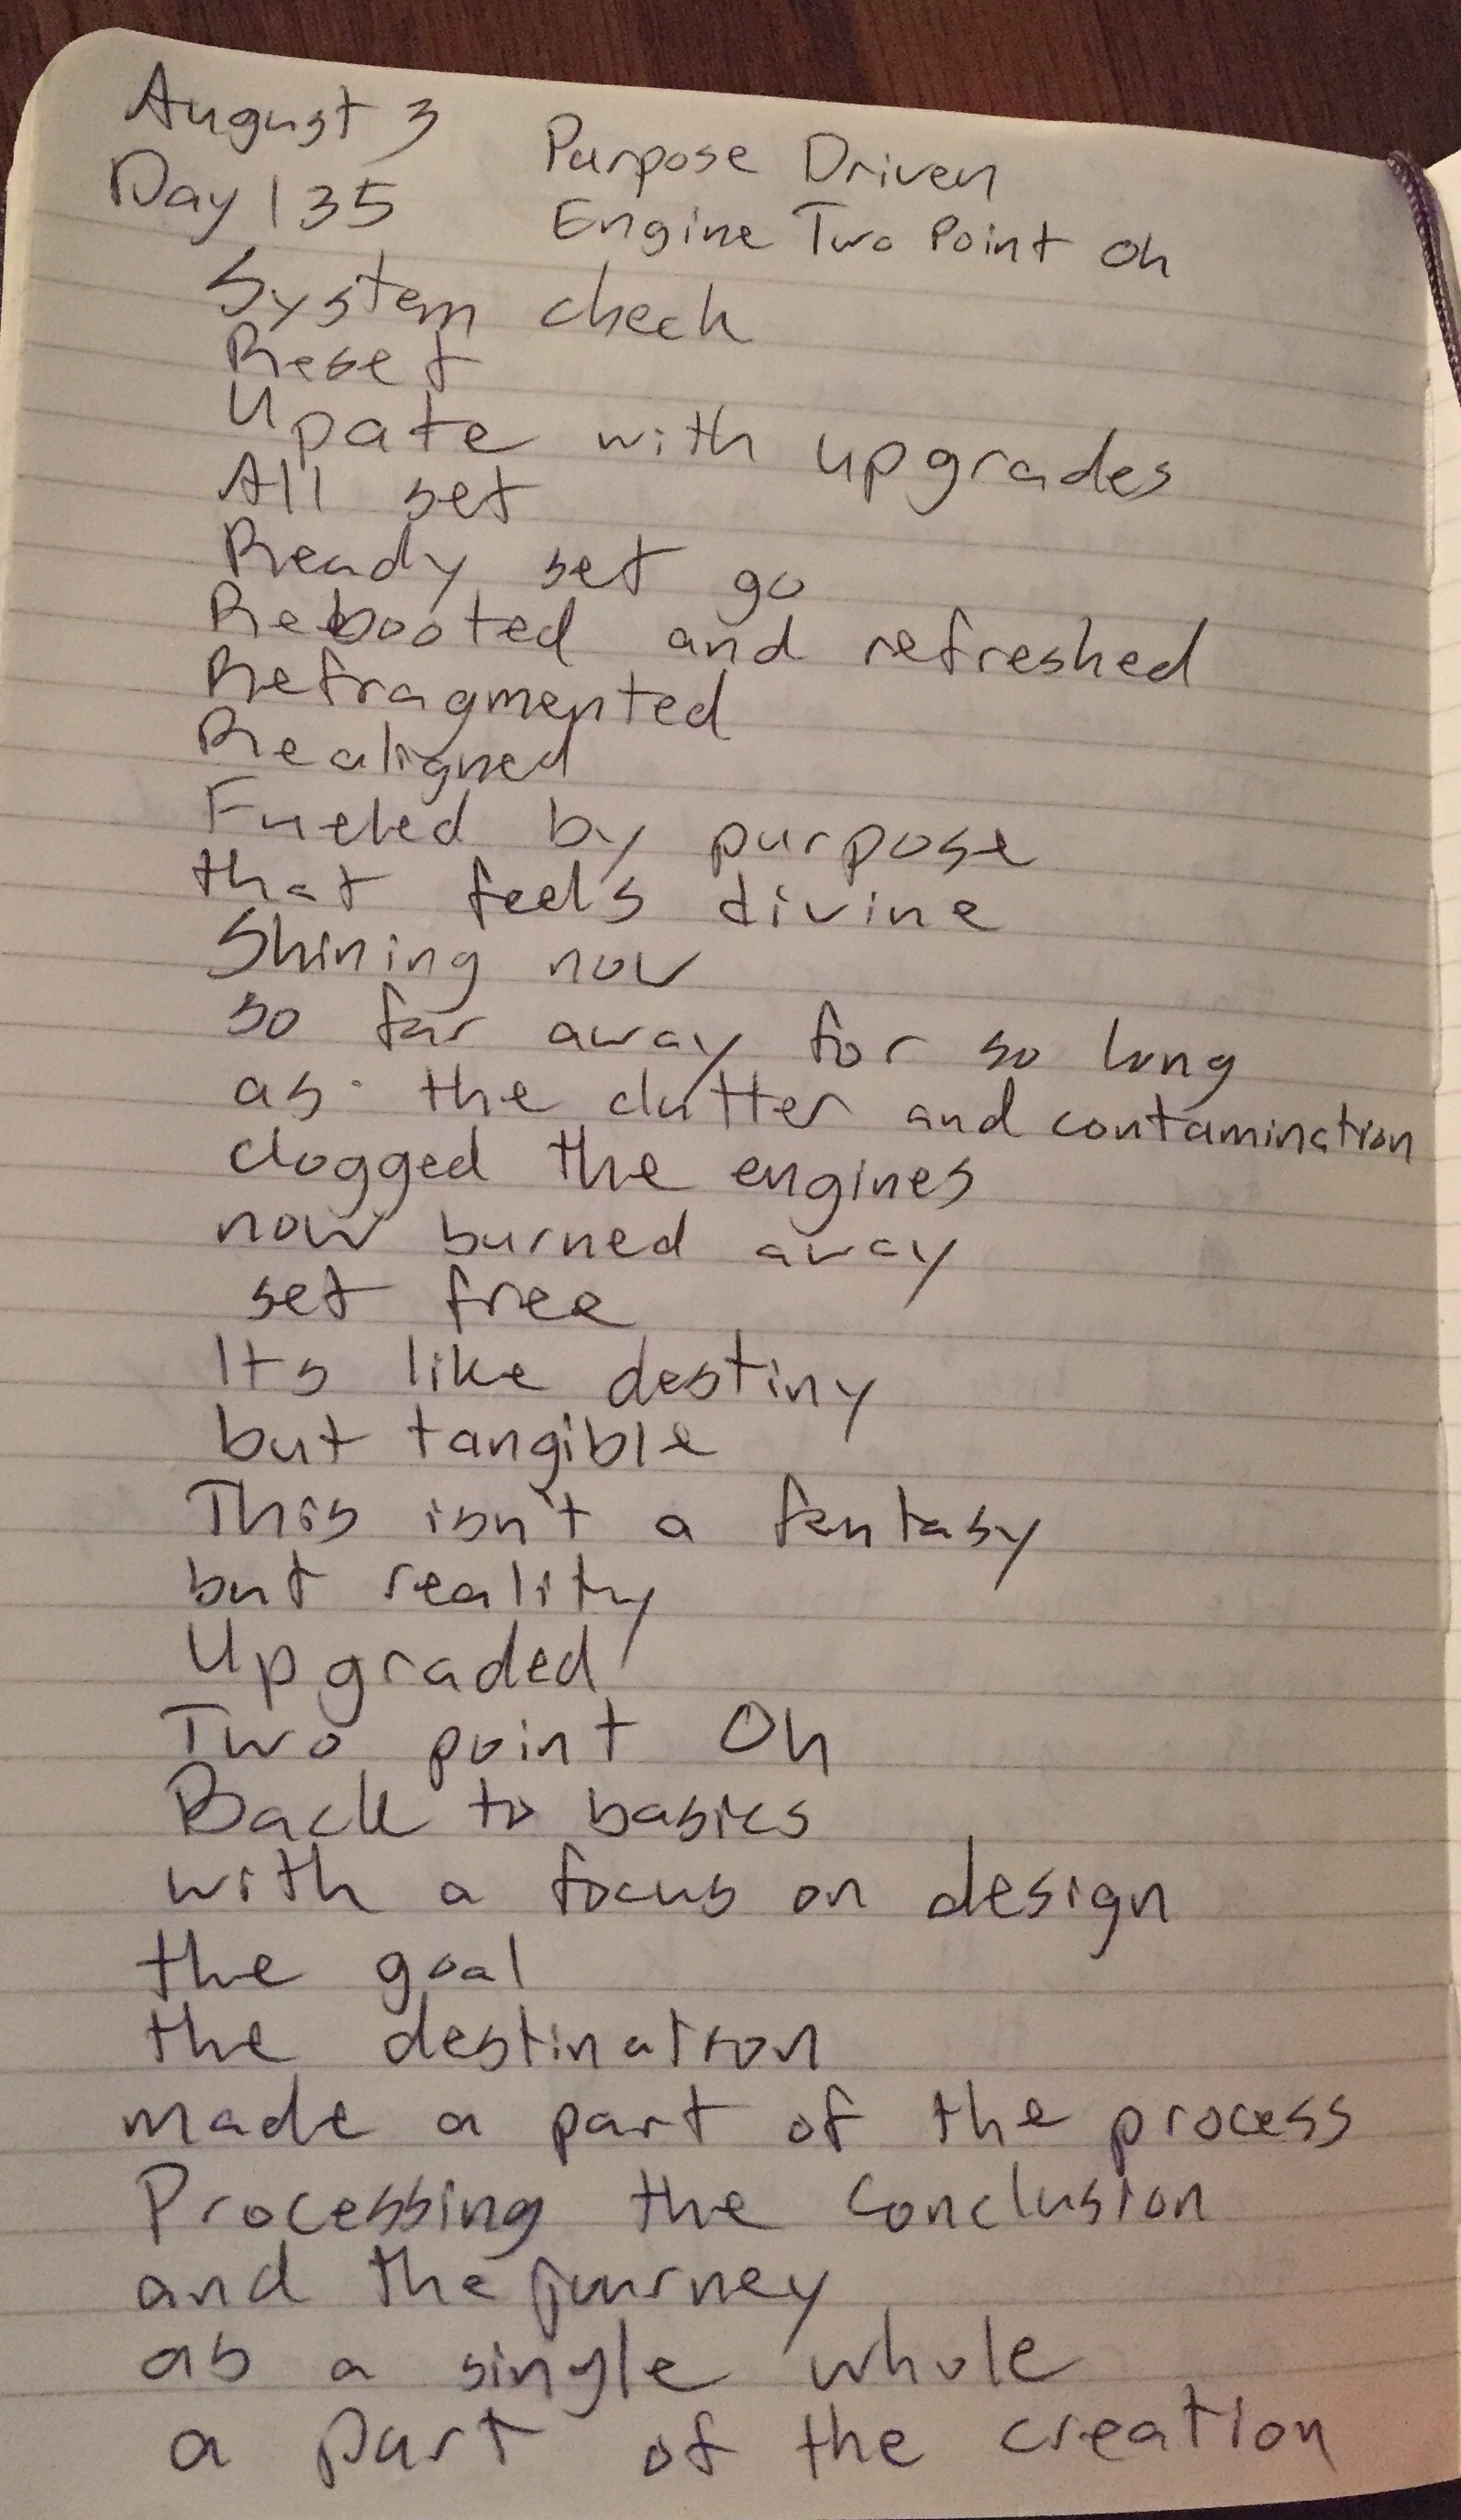 August 3
Day 135
Purpose Driven
Engine Two Point Oh
System check
Reset
Upate with upgrades
All set
Ready set go
Rebooted and refreshed
Refragmented
Realigned
Fueled by purpose
that feels divine
Shining now
so far away for so long
as the clutter and contamination
clogged the engines
now burned away
set free
Its like destiny
but tangible
This isn't a fantasy
but reality
Upgraded
Two point Oh
Back to basics
with a focus on design
the goal
the destination
made a part of the process
Processing the conclusion
and the journey
as a single whole
a part of the creation